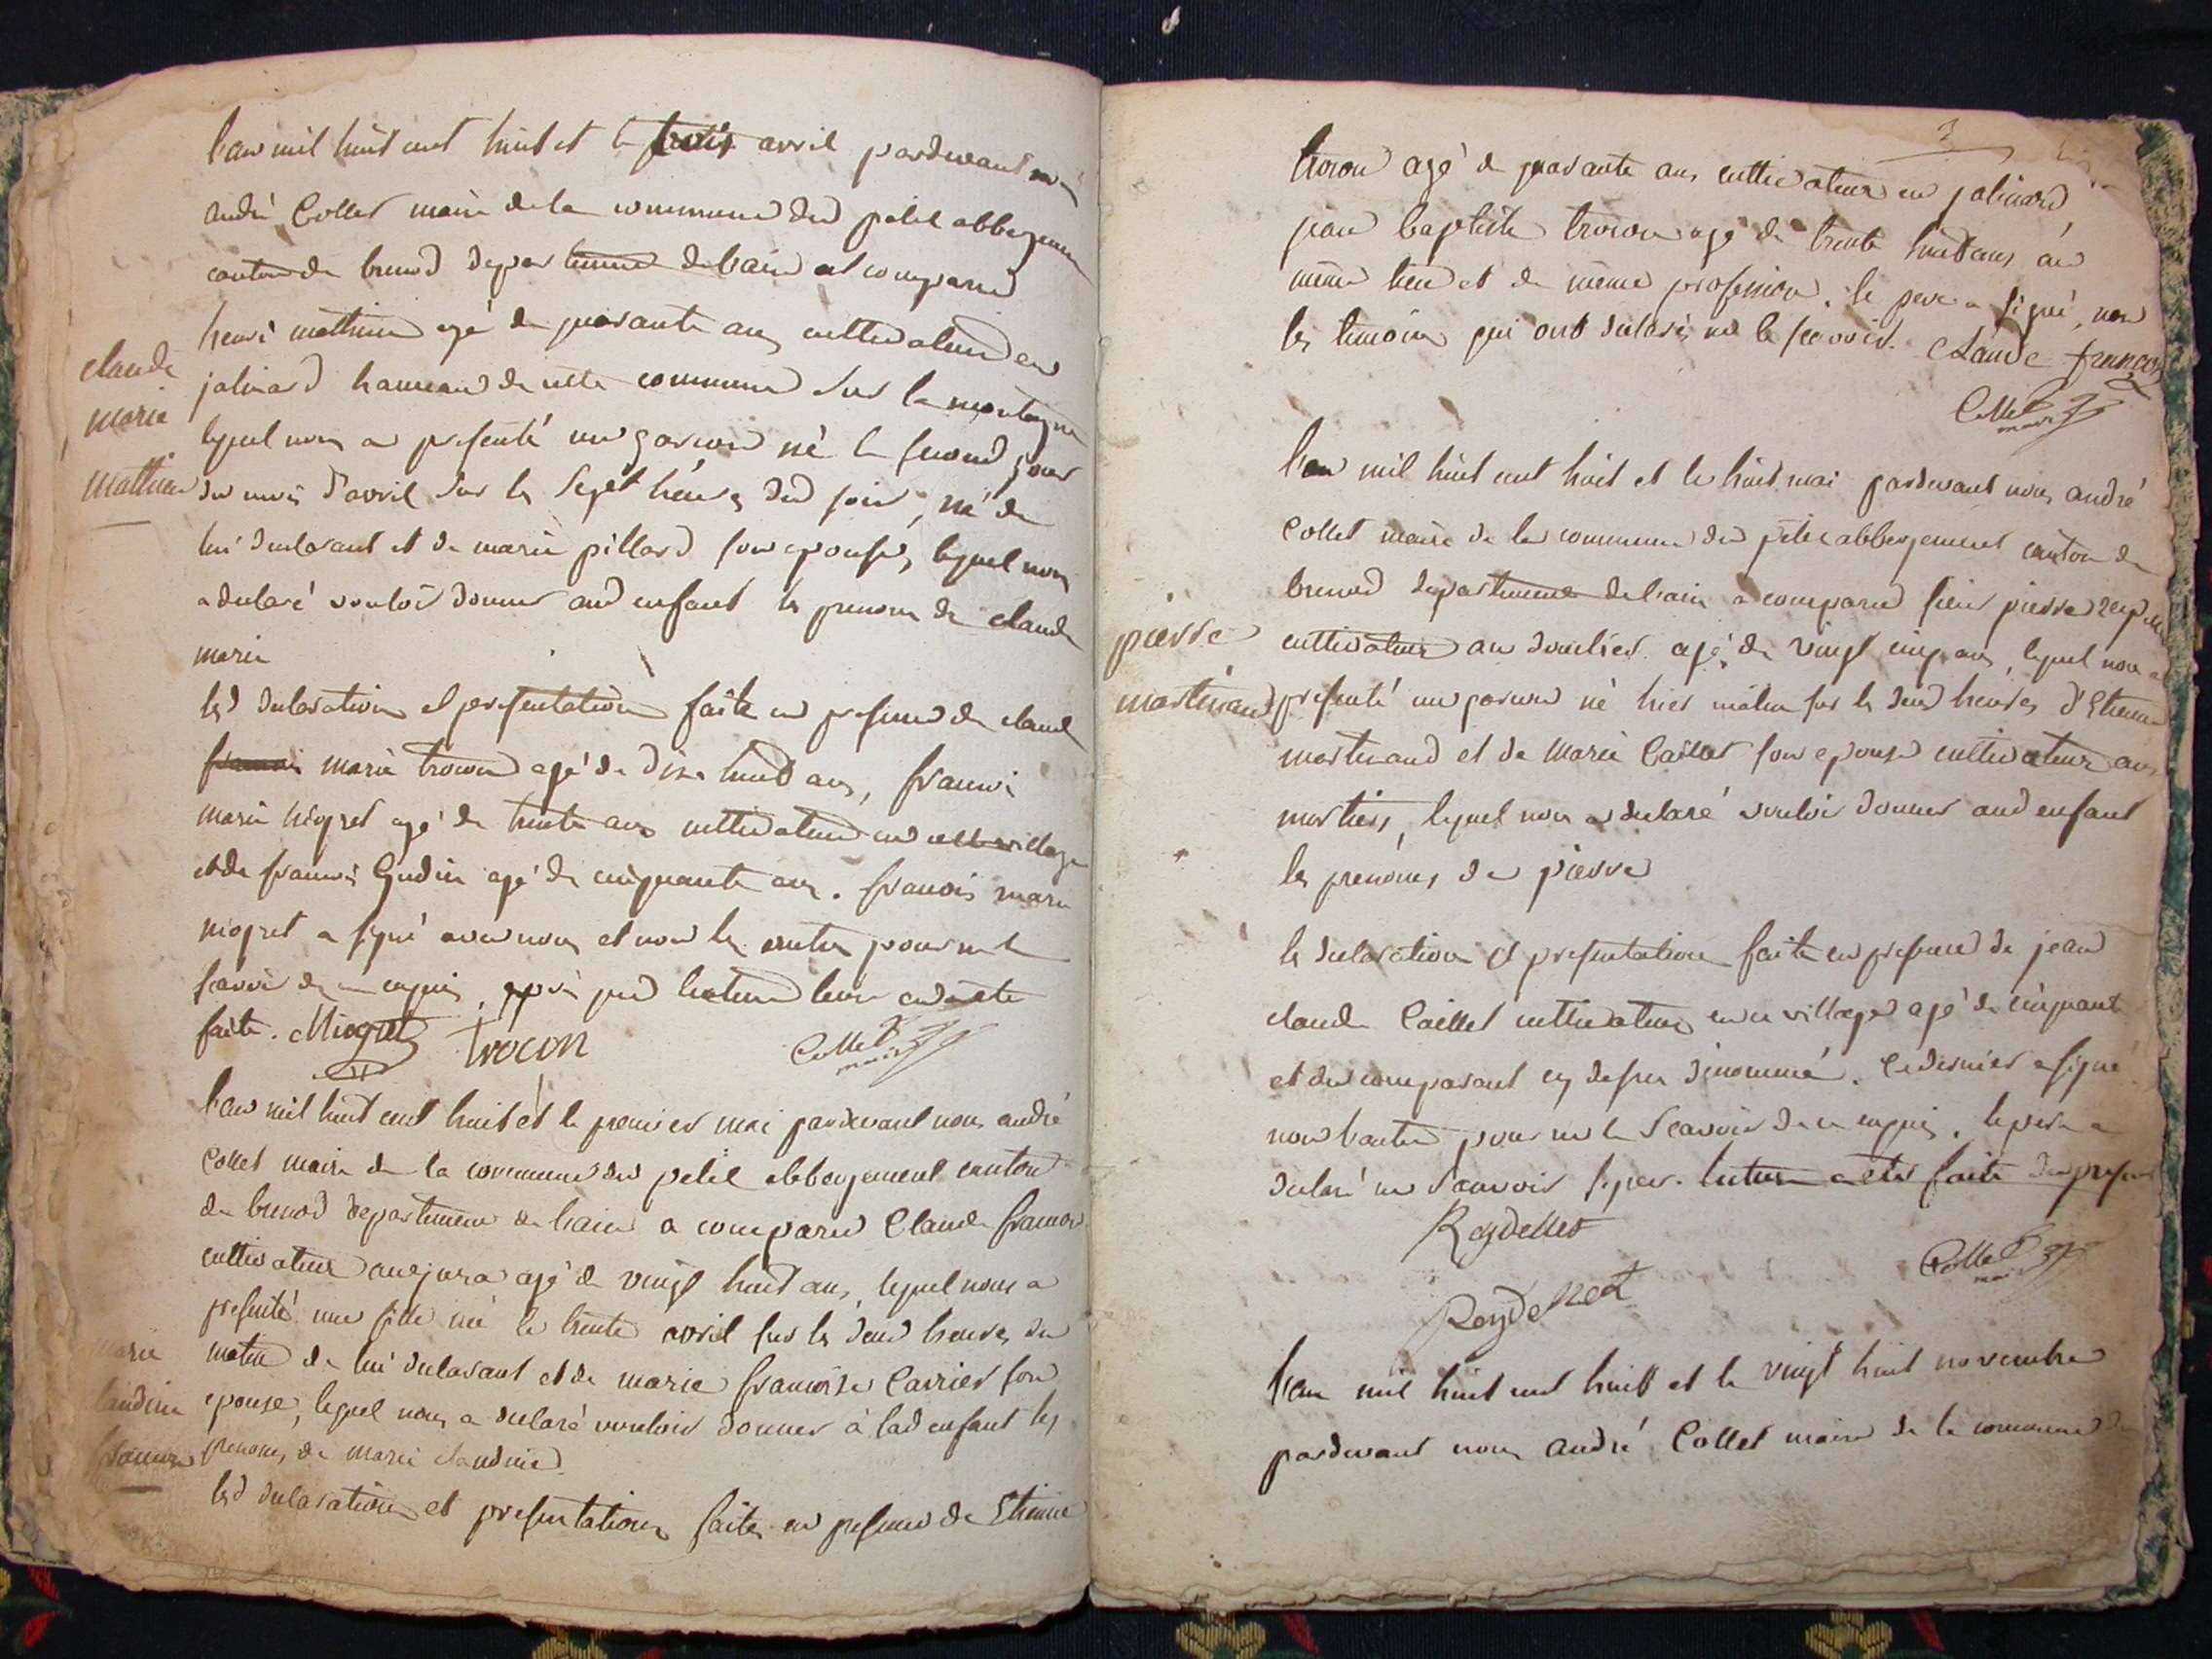 l'an mil huit cent huit et le trois avril pardevant nous
andré Collet maire de la commune du petit abbergement
canton de brenod departement de l'ain a comparu
henri mathieu agé de quarante ans cultivateur en
jalinard hameau de cette commune sur la montagne
claude
marie
mathieu
lequel nous a presenté un garcon né le second jour
du mois d'avril sur les sept heures du soir, né de
lui declarant et de marie pillard son epouse, lequel nous
a declaré vouloir donner aud enfant les prenoms de claude
marie
lesd declaration et presentation faite en presence de claude
marie trocon agé de dix huit ans, francois
marie niogret agé de trente ans cultivateur en village
et de francois Gudin agé de cinquante ans. francois marie
niogret a signé avec nous et non les autres pour ne le
savoir de ce enquis, après que lecture leur en a eté
faite. Niogret trocon Collet maire
l'an mil huit cent huit et le premier mai pardevant nous andré
Collet maire de la commune du petit abbergement canton
de brenod departement de l'ain a comparu Claude francon
cultivateur agé de vingt huit ans, lequel nous a
presenté une fille né le trente avril sur les deux heures du
matin de lui declarant et de marie francoise Carrier son
marie
claudine
francon
epouse, lequel nous a declaré vouloir donner à lad enfant les
prenoms de marie claudine.
lesd declaration et presentation faites en presence de Etienne
3
trocon agé de quarante ans cultivateur en jalinard,
jean baptiste trocon agé de trente huit ans au
même lieu et de même profession. le pere a signé, non
les temoins qui ont declaré ne le scavoir. Claude francon
Collet maire
l'an mil huit cent huit et le huit mai pardevant nous andré
Collet maire de la commune du petit abbergement canton de
brenod departement de l'ain a comparu sieur pierre
cultivateur au agé de vingt cinq ans, lequel nous a
pierre
martinand
presenté un garcon né hier matin sur les deux heures d'Etienne
martinand et de Marie Caillet son epouse cultivateur aux
martiers, lequel nous a declaré vouloir donner aud enfant
les prenoms de pierre
la declaration et presentation faite en presence de jean
claude Caillet cultivateur en ce village agé de cinquante
et du comparant cy dessus denommé. Ce dernier a signé
non l'autre pour ne le scavoir de ce enquis. le pere a
declaré ne scavoir signer. lecture a eté faite du present
Reydellet
Collet maire
Reydellet
l'an mil huit cent huit et le vingt huit novembre
pardevant nous andré Collet maire de la commune du